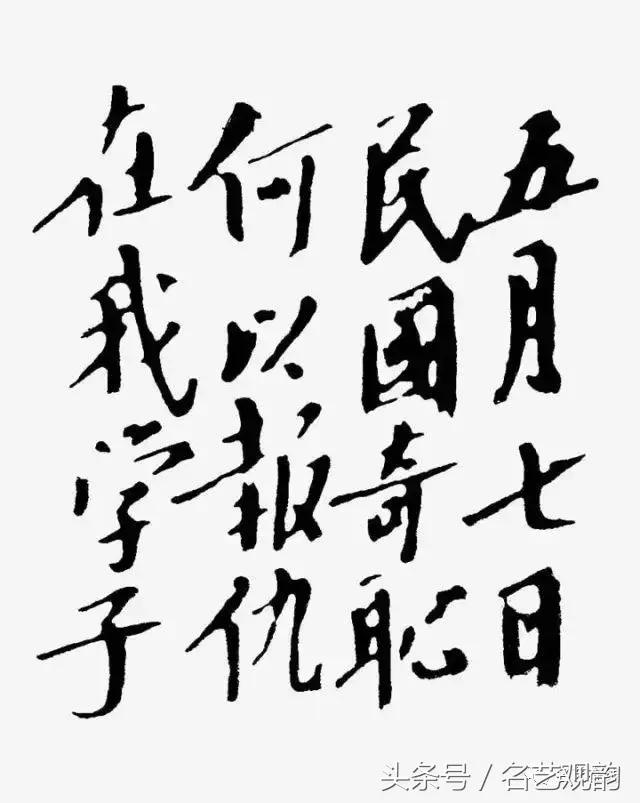 五月七日
民國奇恥
何以報仇
在我学子
头条号 / 名艺观韵